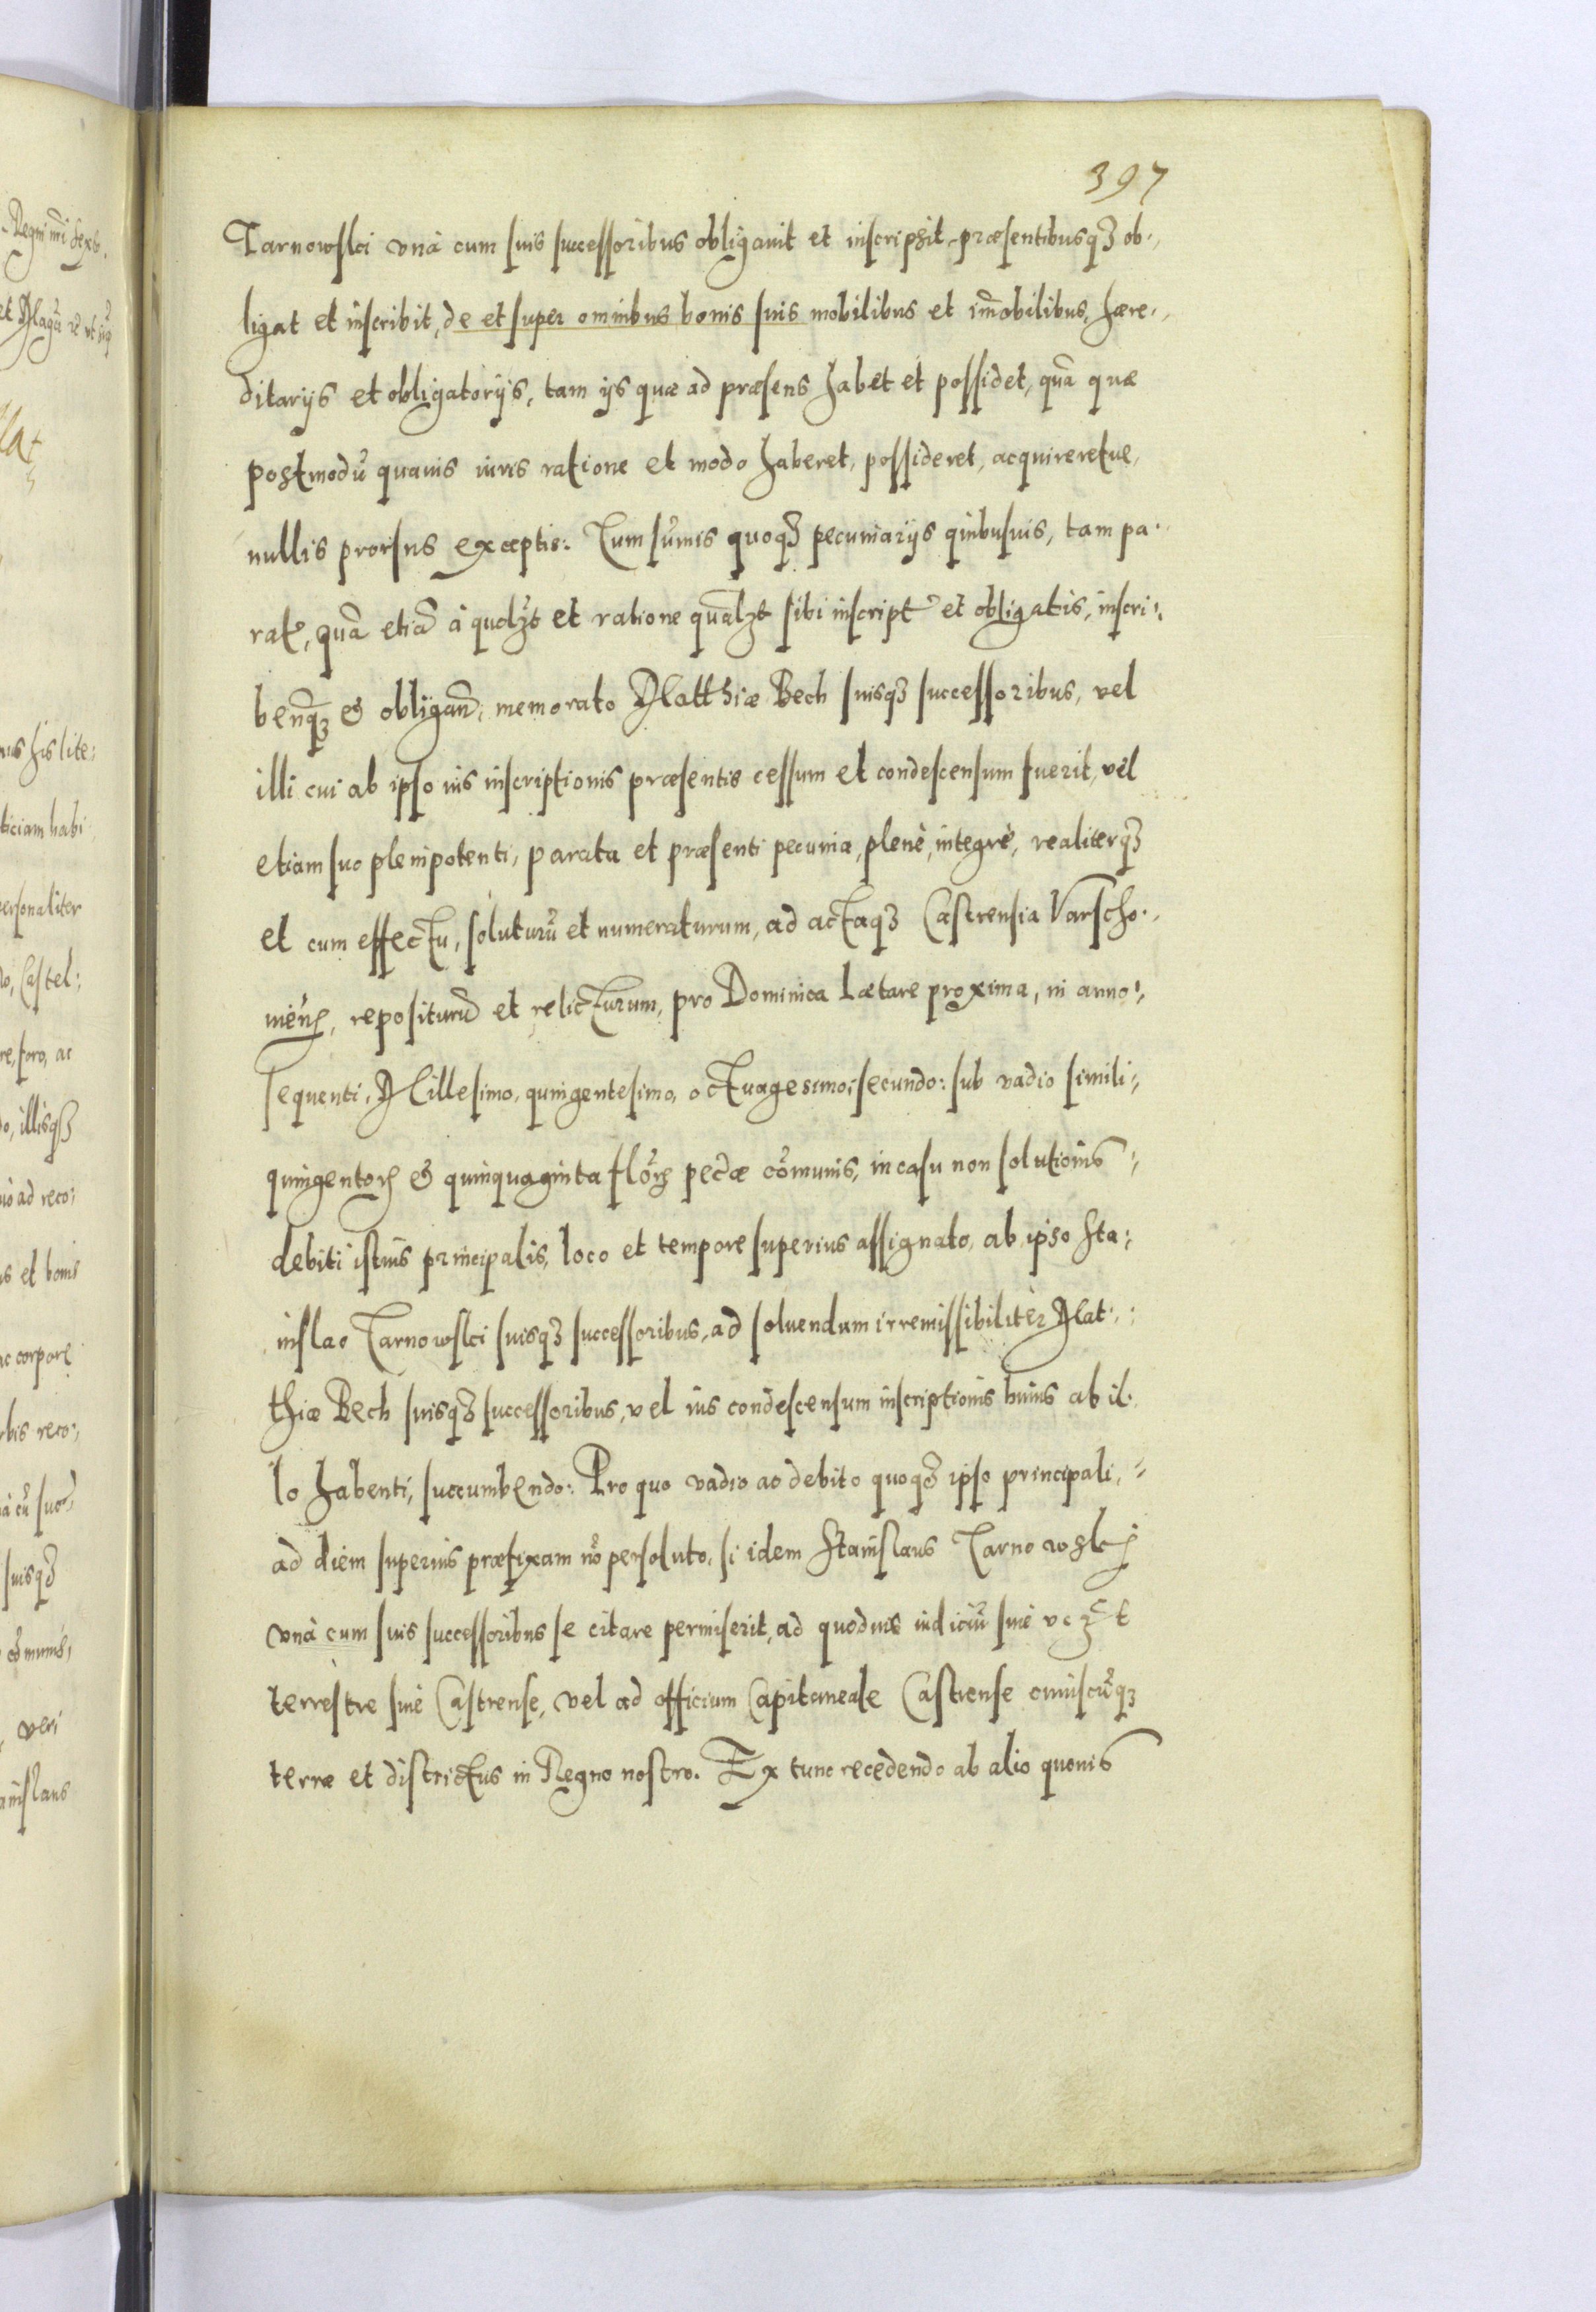 397
Tarnowski vnà cum suis successoribus obligauit et inscripsit, præsentibusq̃ ob-
ligat et inscribit, de et super omnibus bonis suis mobilibus et im̃obilibus, hære-
ditarijs et obligatorijs, tam ijs quæ ad præsens habet et possidet, quã quæ
postmodũ quauis iuris ratione et modo haberet, possideret, acquireretue,
nullis prorsus exceptis: Tum sum̃is quoq̃ pecuniarijs quibusuis, tam pa-
rat, quã etiã à quolʒt et ratione qualʒt sibi inscript et obligatis, inscri-
benq̃ & obligan, memorato Matthiæ Bech suisq̃ successoribus, vel
illi cui ab ipso ius inscriptionis præsentis cessum et condescensum fuerit, vel
etiam suo plenipotenti, parata et præsenti pecunia, plenè, integrè, realiterq̃
et cum effectu, soluturũ et numeraturum, ad actaq̃ Castrensia Varscho-
uien, repositurũ et relicturum, pro Dominica Lætare proxima, in anno
sequenti, Millesimo, quingentesimo, octuagesimo, secundo: sub vadio simili
quingentoꝝ & quinquaginta floꝝ pecũæ com̃unis, in casu non solutionis
debiti istius principalis, loco et tempore superius assignato, ab ipso Sta-
nislao Tarnowski suisq̃ successoribus, ad soluendum irremissibilitèr Mat-
thiæ Bech suisq̃ successoribus, vel ius condescensum inscriptionis huius ab il-
lo habenti, succumbendo: Pro quo vadio ac debito quoq̃ ipso principali,
ad diem superius præfixam nõ persoluto, si idem Stanislaus Tarnowskj
vnà cum suis successoribus se citare permiserit, ad quoduis iudiciũ siue
terrestre siuè Castrense, vel ad officium Capitaneale Castrense cuiuscũq̃
terræ et districtus in Regno nostro. Ex tunc recedendo ab alio quouis